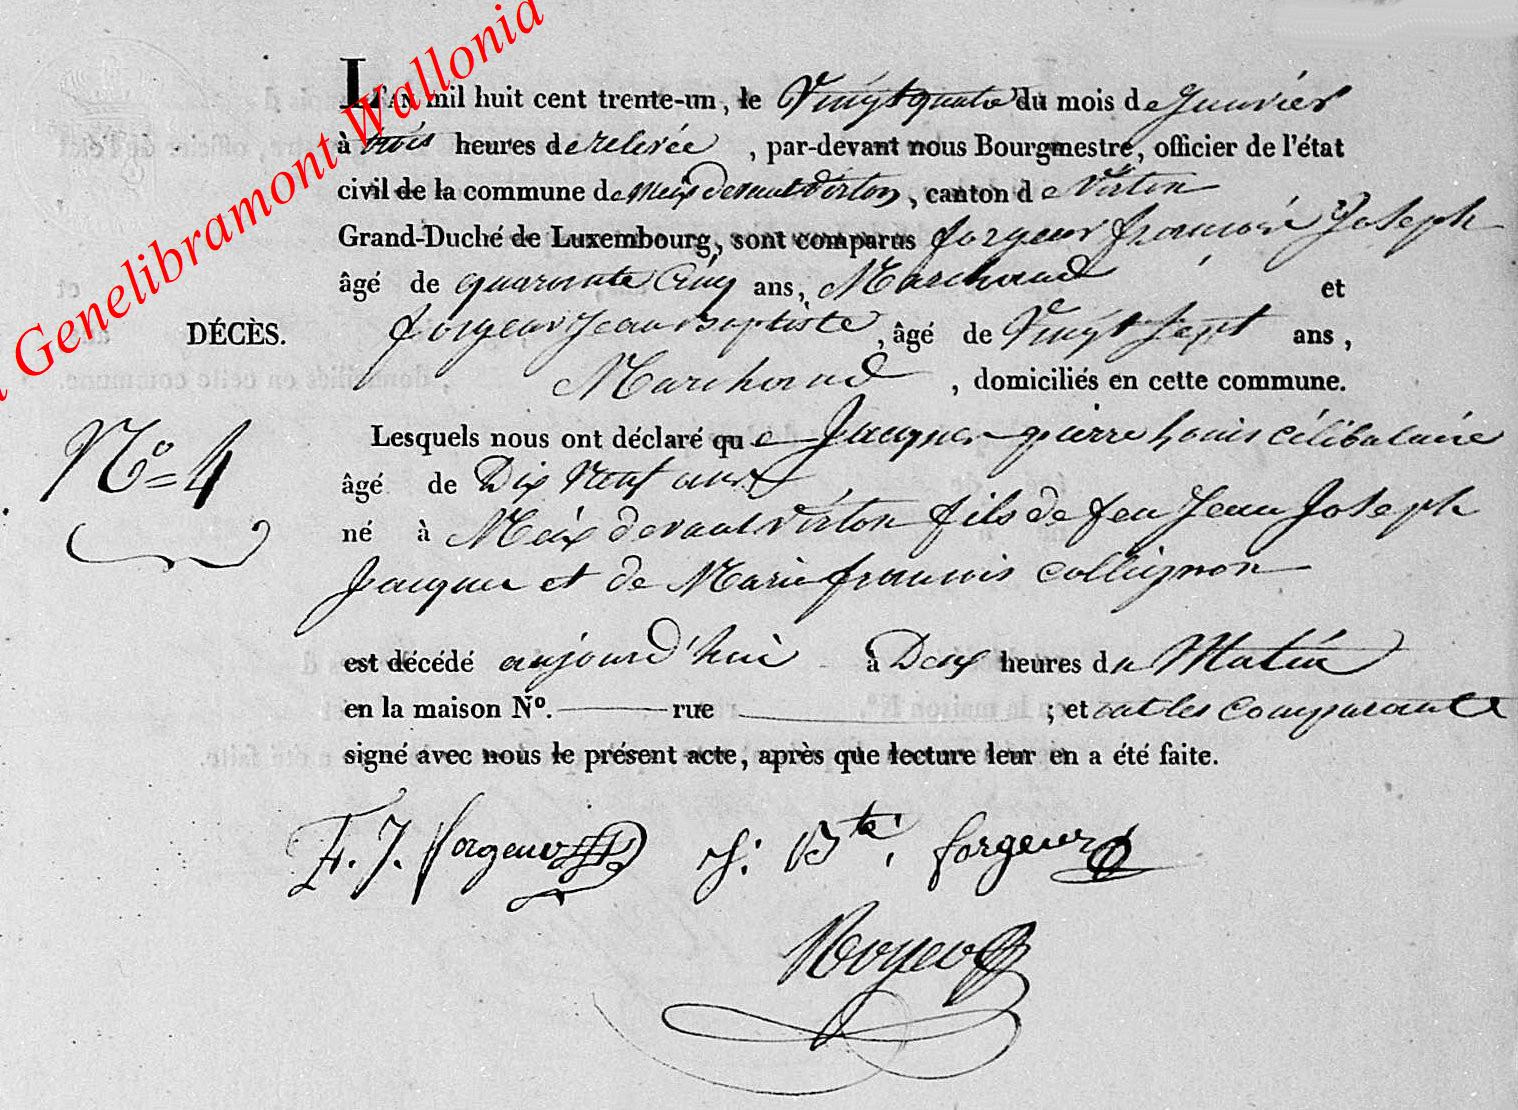 Genelibramont Wallonia
L'AN mil huit cent trente-un, le Vingt quatre du mois de Janvier
à trois heures de relevée, par-devant nous Bourgmestre, officier de l'état
civil de la commune de Meix devant Virton, canton de Virton
Grand-Duché de Luxembourg, sont comparus forgeur francois Joseph
âgé de quarante Cinq ans, Marchand et
DÉCÈS. forgeur Jean Baptiste, âgé de Vingt Sept ans,
Marchand, domiciliés en cette commune.
Lesquels nous ont déclaré que Jacques pierre Louis célibataire
N° = 4
âgé de Dix Neuf ans
né à Meix devant Virton fils de feu Jean Joseph
Jacques et de Marie francois collignon
est décédé aujourd'hui à Deux heures du Matin
en la maison N°. ——— rue ——— ; et ont les comparants
signé avec nous le présent acte, après que lecture leur en a été faite.
F. J. forgeur J: Bte. forgeur